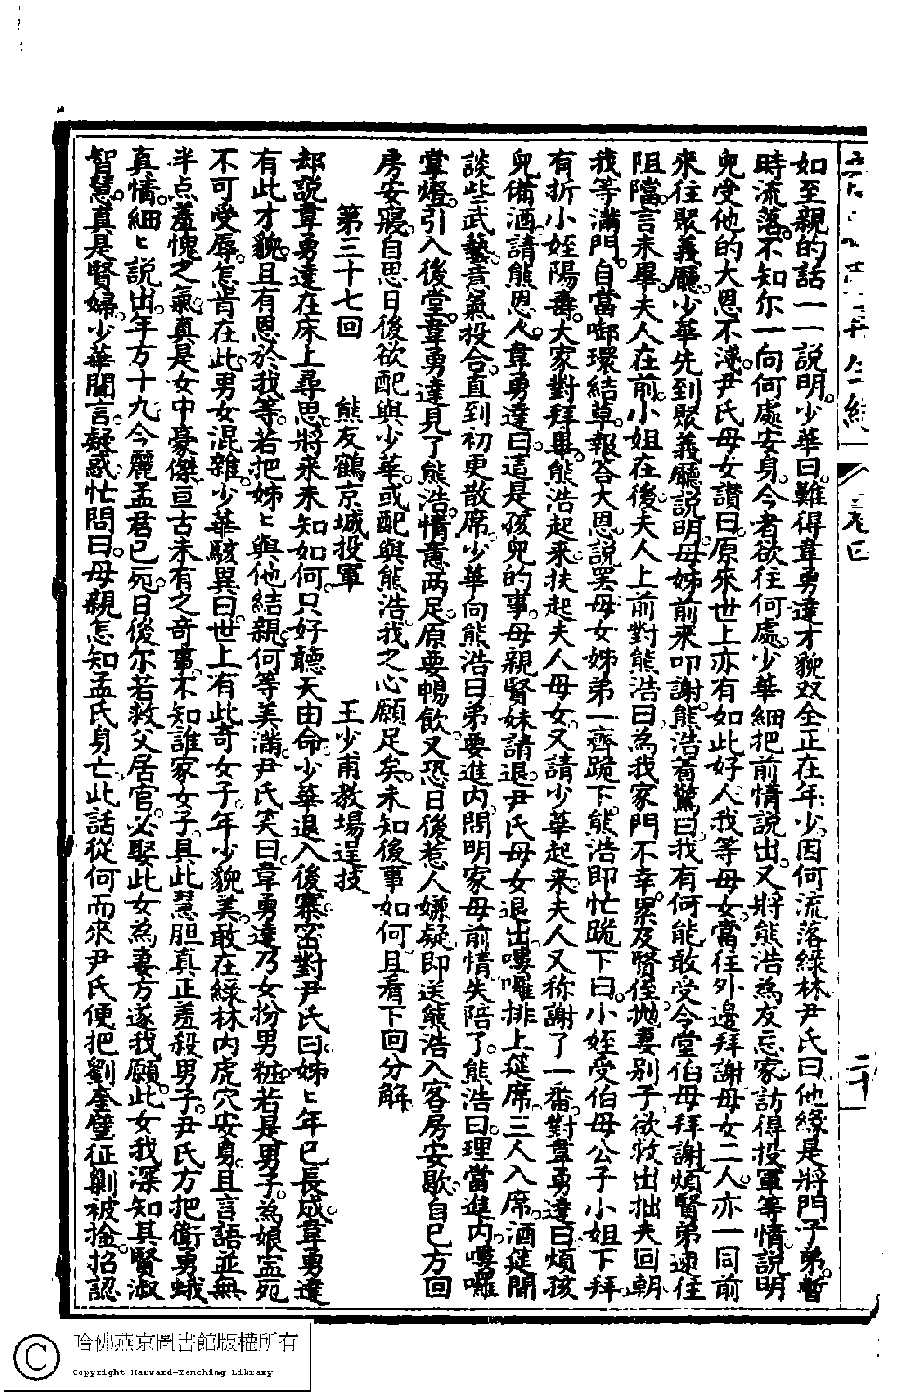 如至親的話一一說明少華曰難得韋勇達才貌双全正在年少因何流落綠林尹氏曰他緣是將門子弟暫
時流落不知尔一向何處安身今者欲往何處少華細把前情說出又將熊浩為友忘家訪得投軍等情說明
兒受他的大恩不淺尹氏母女讚曰原來世上亦有如此好人我等母女當住外邊拜謝母女二人亦一同前
來往聚義廳少華先到聚義廳說明母姊前來叩謝熊浩着驚曰我有何能敢受令堂伯母拜謝煩賢弟速往
阻擋言未畢夫人在前小姐在後夫人上前對熊浩曰為我家門不幸累及賢侄拋妻別子欲救出拙夫回朝
我等滿門自當啣環結草報答大恩說罢母女姊弟一齊跪下熊浩即忙跪下曰小姪受伯母公子小姐下拜
有折小姪陽壽大家對拜畢熊浩起來扶起夫人母女又請少華起來夫人又称謝了一番對韋勇達曰煩孩
兒俻酒請熊恩人韋勇達曰這是孩兒的事母親賢妹請退尹氏母女退出嘍囉排上筵席三人入席酒筵間
談些武藝意氣投合直到初更散席少華向熊浩曰弟要進內問明家母前情失陪了熊浩曰理當進內嘍囉
掌燈引入後堂韋勇達見了熊浩情蕙两足原要暢飲又恐日後惹人嫌疑即送熊浩入客房安歇自已方回
房安寢自思日後欲配與少華或配與熊浩我之心願足矣未知後事如何且看下回分觧
第三十七回 熊友鶴京城投軍 王少甫教場逞技
却説韋勇達在床上尋思將來未知如何只好聽天由命少華退入後寨密對尹氏曰姊ヒ年已長成韋勇達
有此才貌且有恩於我等若把姊ヒ與他結親何等美滿尹氏笑曰韋勇達乃女扮男粧若是男子為娘寕死
不可受辱怎肯在此男女混雜少華駭異曰世上有此奇女子年少貌美敢在綠林内虎穴安身且言語並無
半点羞愧之氣真是女中豪傑亘古未有之奇事不知誰家女子具此慧胆真正羞殺男子尹氏方把衛勇娥
真情細ヒ説出年方十九今麗孟君已死日後尔若救父居官必娶此女為妻方遂我願此女我深知其賢淑
智慧真是賢婦少華聞言疑惑忙問曰母親怎知孟氏身亡此話從何而來尹氏便把劉奎璧征剿被擒招認
卷四
二十
哈佛燕京圖書館版權所有
Copyright Harvard-Yenching Library